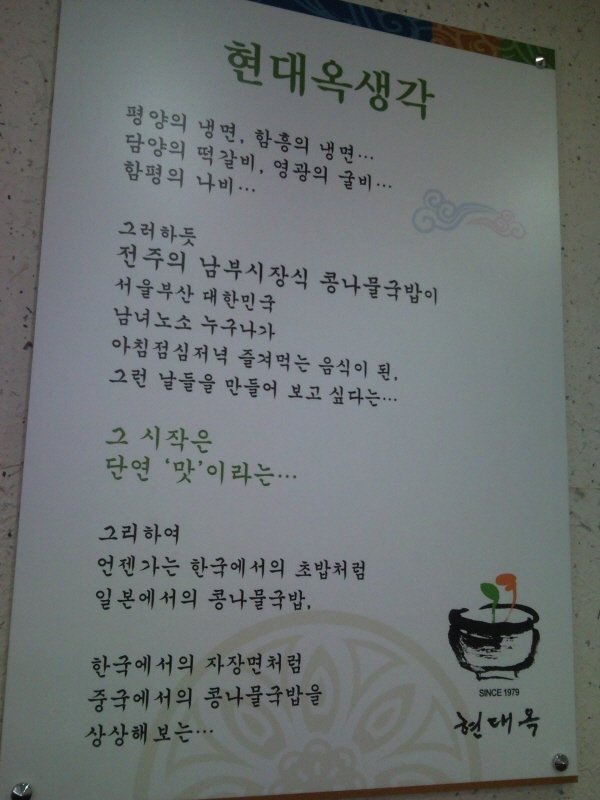 현대옥생각
평양의 냉면, 함흥의 냉면…
담양의 떡갈비, 영광의 굴비…
함평의 나비…
그러하듯
전주의 남부시장식 콩나물국밥이
서울부산 대한민국
남녀노소 누구나가
아침점심저녁 즐겨먹는 음식이 된,
그런 날들을 만들어 보고 싶다는…
그 시작은
단연 '맛'이라는…
그리하여
언젠가는 한국에서의 초밥처럼
일본에서의 콩나물국밥,
한국에서의 자장면처럼
중국에서의 콩나물국밥을
상상해보는…
SINCE 1979
현대옥